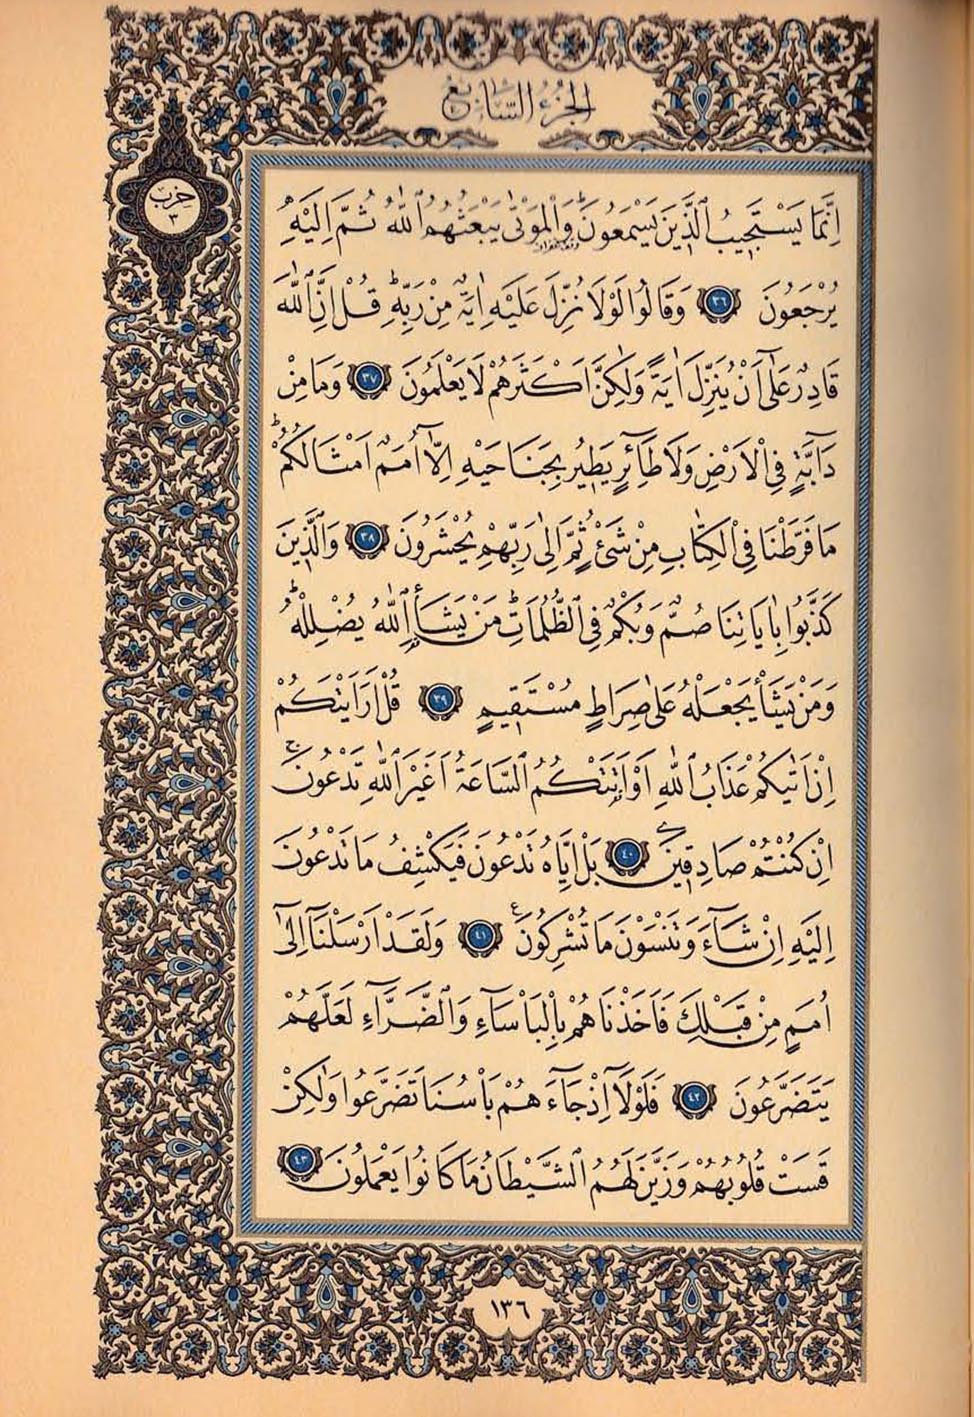 الجزء السابع
حزب
٣
اِنَّمَا يَسْتَجٖيبُ الَّذٖينَ يَسْمَعُونَؕ وَالْمَوْتٰى يَبْعَثُهُمُ اللّٰهُ ثُمَّ اِلَيْهِ
يُرْجَعُونَ ﴿٣٦﴾ وَقَالُوا لَوْلَا نُزِّلَ عَلَيْهِ اٰيَةٌ مِنْ رَبِّهٖؕ قُلْ اِنَّ اللّٰهَ
قَادِرٌ عَلٰٓى اَنْ يُنَزِّلَ اٰيَةً وَلٰكِنَّ اَكْثَرَهُمْ لَا يَعْلَمُونَ ﴿٣٧﴾ وَمَا مِنْ
دَٓابَّةٍ فِي الْاَرْضِ وَلَا طَٓائِرٍ يَطٖيرُ بِجَنَاحَيْهِ اِلَّٓا اُمَمٌ اَمْثَالُكُمْؕ
مَا فَرَّطْنَا فِي الْكِتَابِ مِنْ شَيْءٍ ثُمَّ اِلٰى رَبِّهِمْ يُحْشَرُونَ ﴿٣٨﴾ وَالَّذٖينَ
كَذَّبُوا بِاٰيَاتِنَا صُمٌّ وَبُكْمٌ فِي الظُّلُمَاتِؕ مَنْ يَشَأِ اللّٰهُ يُضْلِلْهُؕ
وَمَنْ يَشَأْ يَجْعَلْهُ عَلٰى صِرَاطٍ مُسْتَقٖيمٍ ﴿٣٩﴾ قُلْ اَرَاَيْتَكُمْ
اِنْ اَتٰيكُمْ عَذَابُ اللّٰهِ اَوْ اَتَتْكُمُ السَّاعَةُ اَغَيْرَ اللّٰهِ تَدْعُونَۚ
اِنْ كُنْتُمْ صَادِقٖينَ ﴿٤٠﴾ بَلْ اِيَّاهُ تَدْعُونَ فَيَكْشِفُ مَا تَدْعُونَ
اِلَيْهِ اِنْ شَٓاءَ وَتَنْسَوْنَ مَا تُشْرِكُونَ ﴿٤١﴾ وَلَقَدْ اَرْسَلْنَٓا اِلٰٓى
اُمَمٍ مِنْ قَبْلِكَ فَاَخَذْنَاهُمْ بِالْبَأْسَٓاءِ وَالضَّرَّٓاءِ لَعَلَّهُمْ
يَتَضَرَّعُونَ ﴿٤٢﴾ فَلَوْلَٓا اِذْ جَٓاءَهُمْ بَأْسُنَا تَضَرَّعُوا وَلٰكِنْ
قَسَتْ قُلُوبُهُمْ وَزَيَّنَ لَهُمُ الشَّيْطَانُ مَا كَانُوا يَعْمَلُونَ ﴿٤٣﴾
١٣٦